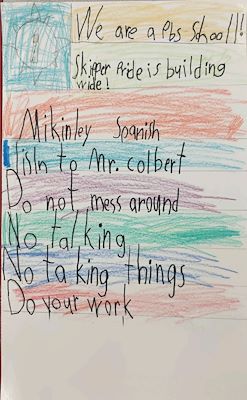 We are a Pbs School!!
Skipper Pride is building
wide!
Mikinley Spanish
lisln to Mr. colbert
Do not mess around
No talking
No taking things
Do your work